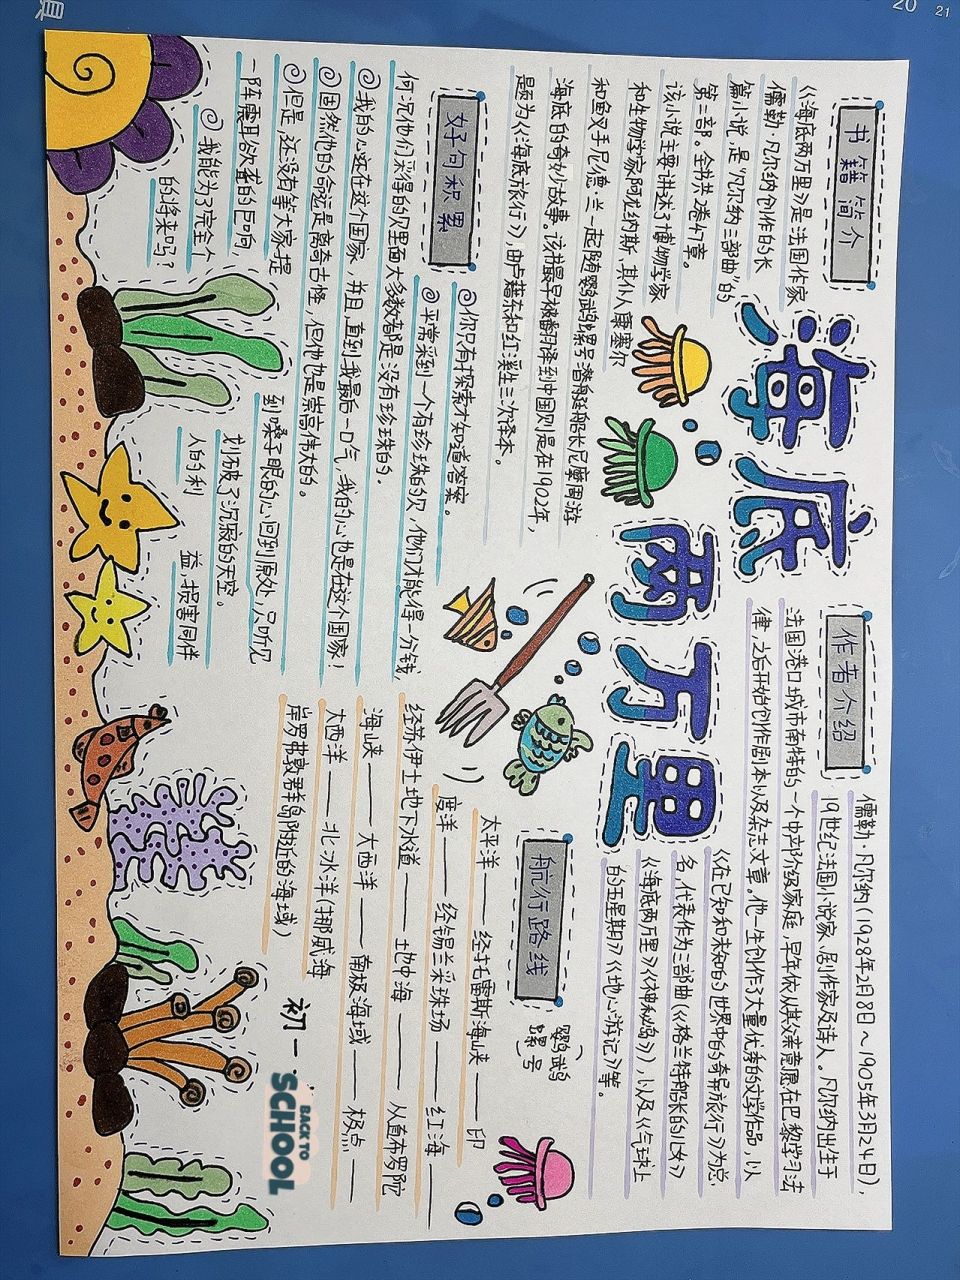 海底两万里
书籍简介
《海底两万里》是法国作家
儒勒·凡尔纳创作的长
篇小说,是“凡尔纳三部曲”的
第二部。全书共2卷47章。
该小说主要讲述了博物学家
和生物学家阿尤纳斯、其仆人康塞尔
和鱼叉手尼德·兰一起随鹦鹉螺号潜艇船长尼摩周游
海底的奇妙故事。该书最早被翻译到中国则是在1902年,
题为《海底旅行》,由卢藉东和红溪生三次译本。
好句积累
你只有探索才知道答案。
平常采到一个有珍珠的贝,他们才能得一分钱,
何况他们采得的贝里面大多数都是没有珍珠的。
我的心还在这个国家,并且,直到我最后一口气,我的心也是在这个国家!
固然他的命运是离奇古怪,但他也是崇高伟大的。
但是,还没有等大家提
到嗓子眼的心回到原处,只听见
一阵震耳欲聋的巨响
划破了沉寂的天空。
我能为了完全个
人的利
益,损害同伴
的将来吗?
作者介绍
儒勒·凡尔纳(1928年2月8日～1905年3月24日),
19世纪法国小说家、剧作家及诗人。凡尔纳出生于
法国港口城市南特的一个中产阶级家庭,早年依从其父亲意愿在巴黎学习法
律,之后开始创作剧本以及杂志文章。他一生创作了大量优秀的文学作品,以
《在已知和未知的世界中的奇异旅行》为总
名,代表作为三部曲《格兰特船长的儿女》
《海底两万里》《神秘岛》),以及《气球上
的五星期》《地心游记》等。
航行路线
鹦鹉
螺号
太平洋——经托雷斯海峡——印
度洋——经锡兰采珠场——红海——
经苏伊士地下水道——地中海——从直布罗陀
海峡——大西洋——南极海域——极点——
大西洋——北冰洋(挪威海
岸罗弗敦群岛附近的海域)
初一
BACK TO
SCHOOL
20
21